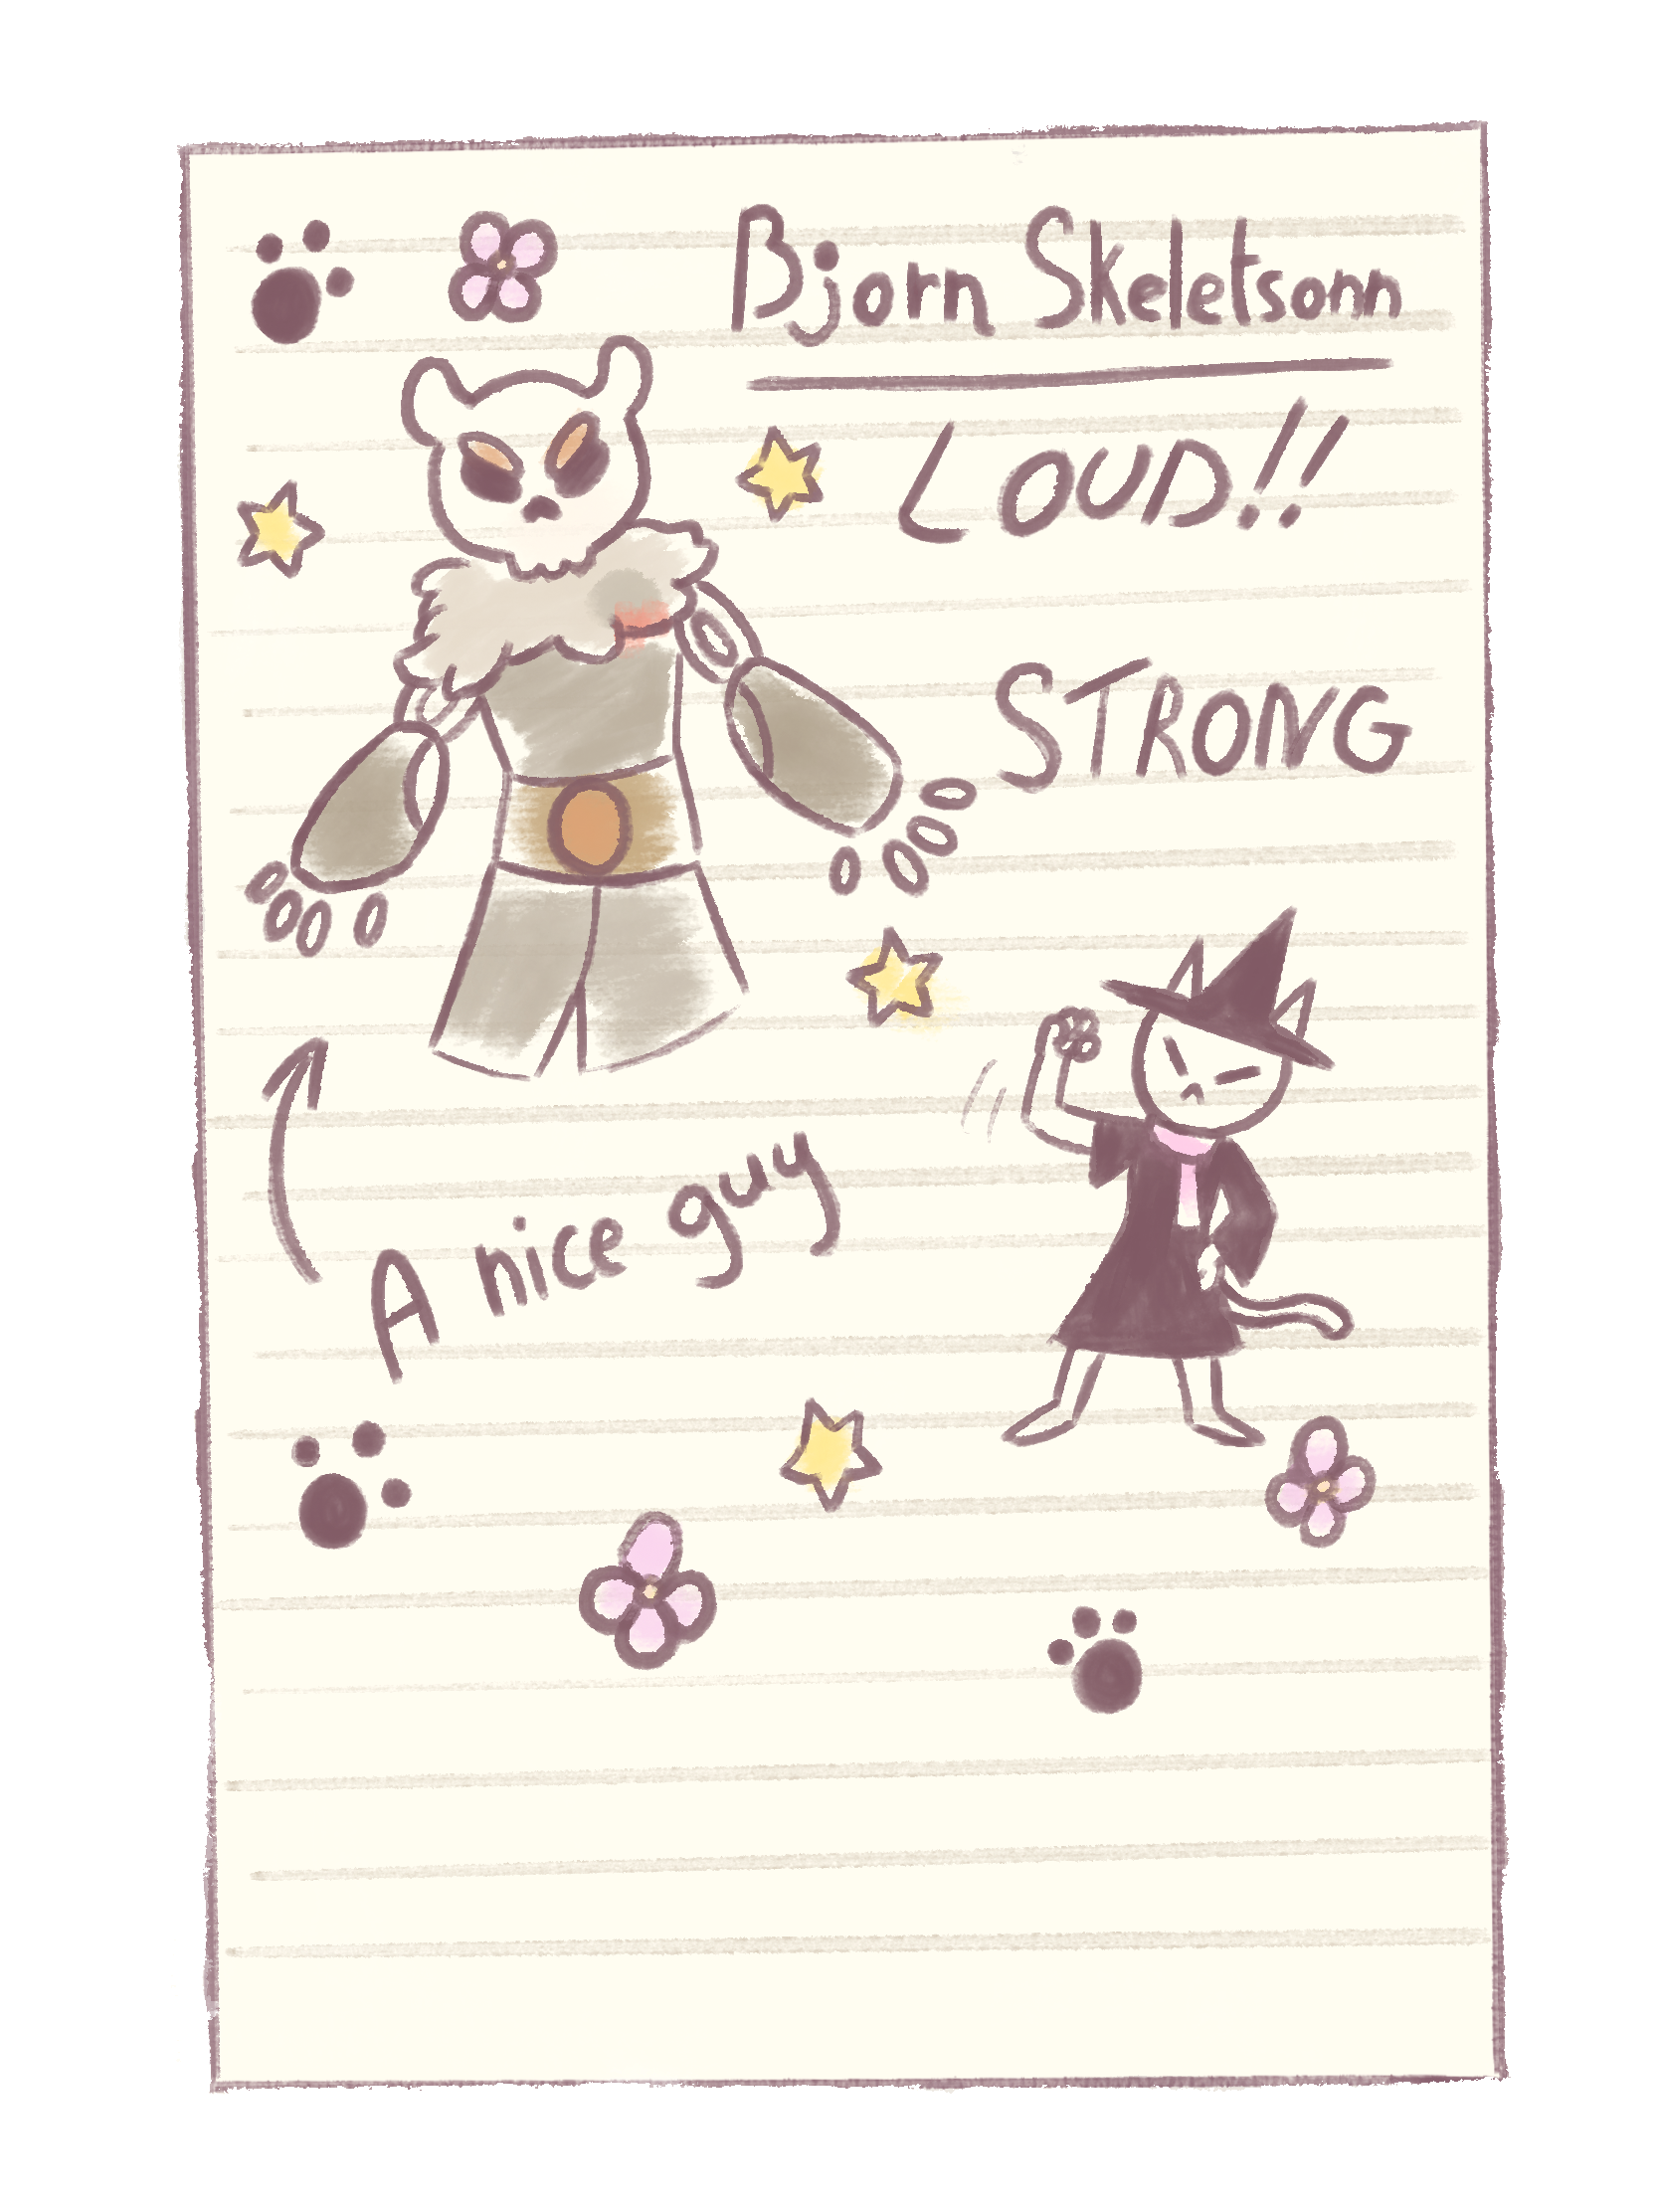 Bjorn Skeletsonn
LOUD!!
STRONG
A nice guy